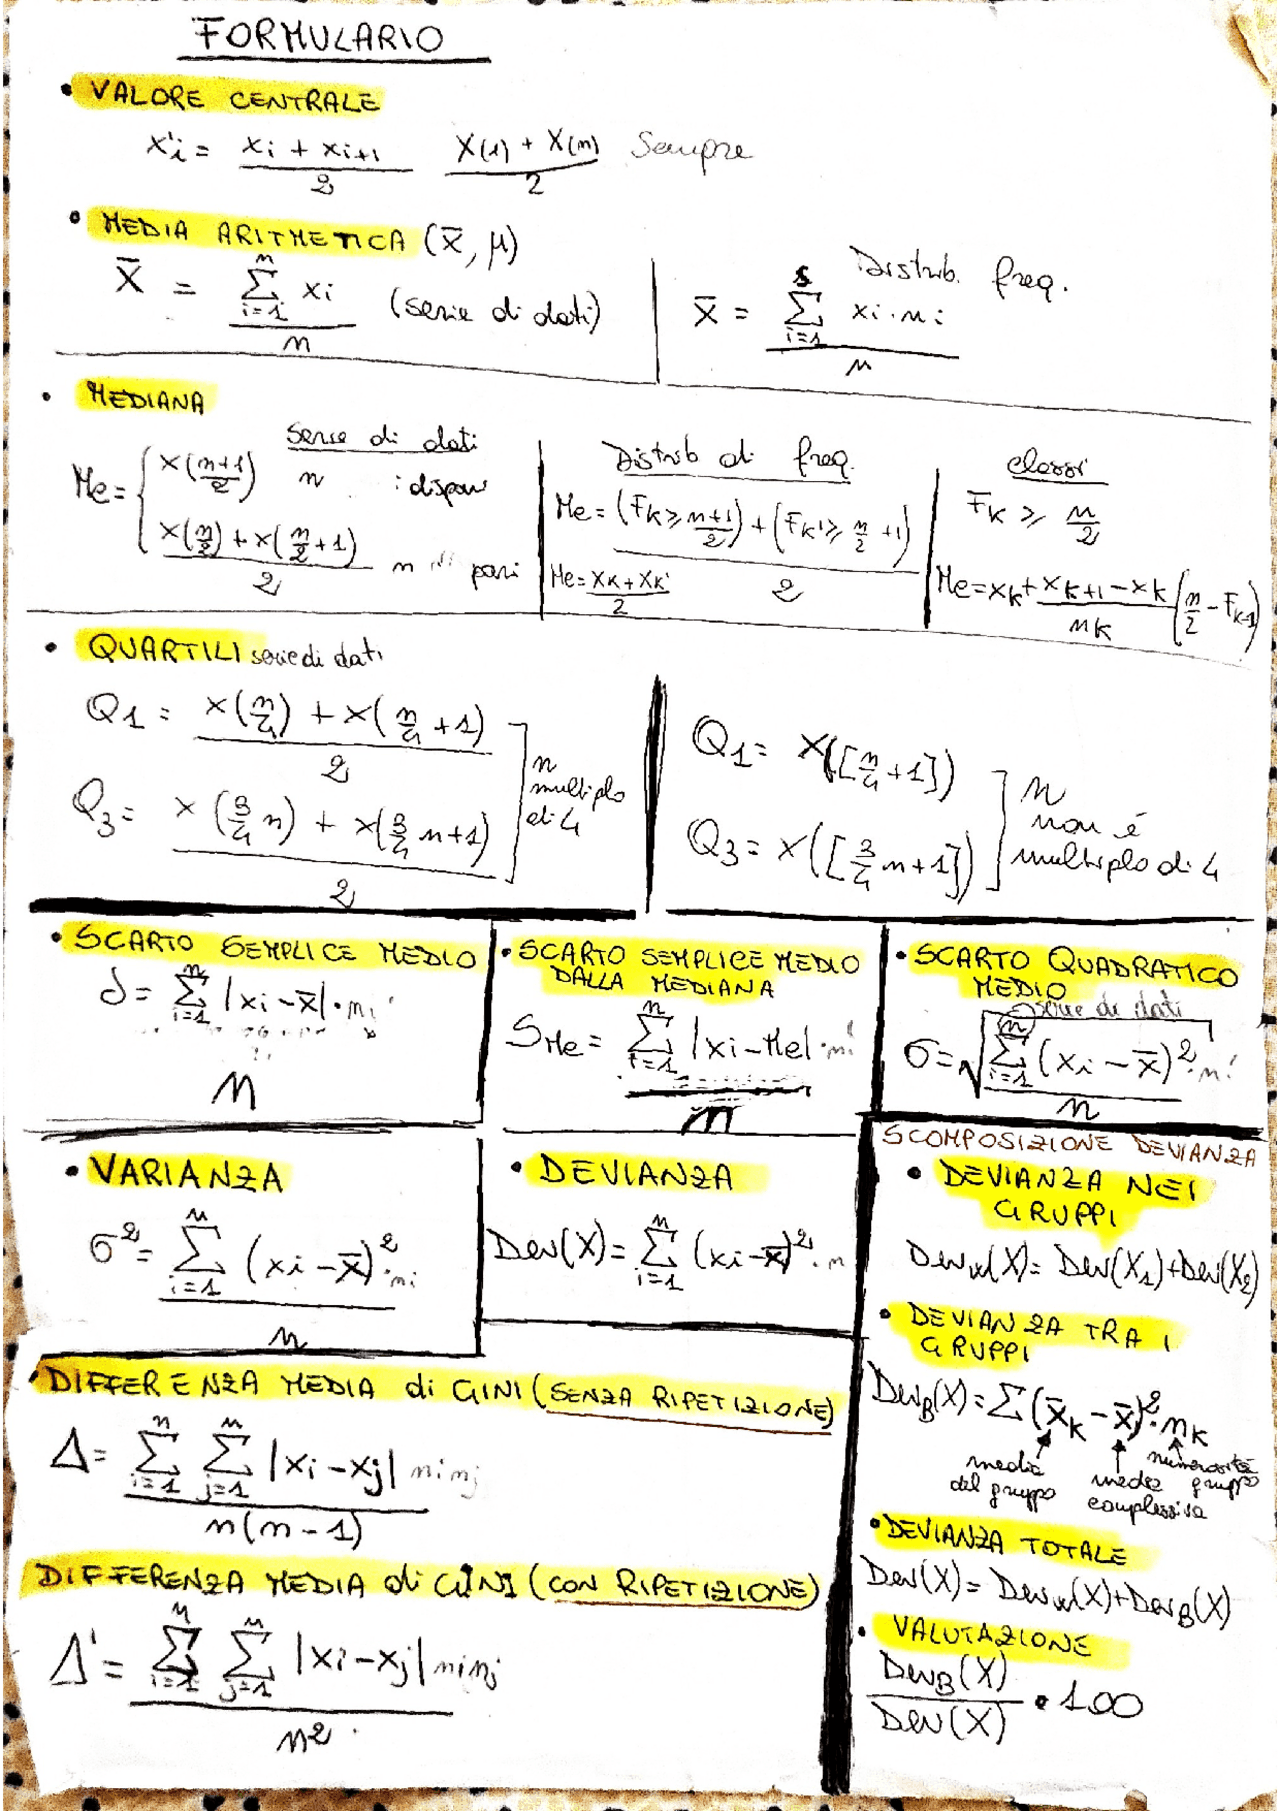 FORMULARIO
• VALORE CENTRALE
x'i = (xi + xi+1)/2   (X(1) + X(n))/2 Sempre
• MEDIA ARITMETICA (x̄, μ)
X̄ = Σ(i=1→n) xi / n (serie di dati)
Distrib. freq.
X̄ = Σ(i=1→s) xi·ni / n
• MEDIANA
Me = { X((n+1)/2) n dispari
(X(n/2) + X(n/2+1))/2 n pari
Serie di dati
Distrib di freq.
Me = ((FK ≥ (n+1)/2) + (FK' ≥ n/2 +1))/2
Me = (XK + XK')/2
classi
FK ≥ n/2
Me = xK + (xK+1 − xK)/nK (n/2 − FK-1)
• QUARTILI serie di dati
Q1 = (X(n/4) + X(n/4 + 1))/2
Q3 = (X(3/4 n) + X(3/4 n+1))/2
n multiplo di 4
Q1 = X([n/4 + 1])
Q3 = X([3/4 n+1])
n non è multiplo di 4
• SCARTO SEMPLICE MEDIO
δ = Σ(i=1→n) |xi − x̄|·ni / n
• SCARTO SEMPLICE MEDIO
DALLA MEDIANA
SMe = Σ(i=1→n) |xi − Me|·ni / n
• SCARTO QUADRATICO
MEDIO
serie di dati
σ = √(Σ(i=1→n) (xi − x̄)²·ni / n)
• VARIANZA
σ² = Σ(i=1→n) (xi − x̄)²·ni / n
• DEVIANZA
Dev(X) = Σ(i=1→n) (xi − x̄)²·n
SCOMPOSIZIONE DEVIANZA
• DEVIANZA NEI
GRUPPI
Devw(X) = Dev(X1)+Dev(X2)
• DEVIANZA TRA I
GRUPPI
DevB(X) = Σ(x̄K − x̄)²·nK
media del gruppo
media complessiva
numerosità gruppo
• DEVIANZA TOTALE
Dev(X) = Devw(X)+DevB(X)
• VALUTAZIONE
DevB(X) / Dev(X) • 100
• DIFFERENZA MEDIA di GINI (SENZA RIPETIZIONE)
Δ = Σ(i=1→n) Σ(j=1→n) |xi − xj| ninj / n(n−1)
DIFFERENZA MEDIA di GINI (CON RIPETIZIONE)
Δ' = Σ(i=1→n) Σ(j=1→n) |xi − xj| ninj / n²